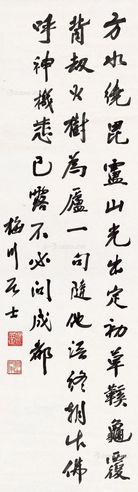 方水繞毘盧山光出定初草鞋龜覆
背劫火樹為廬一句隨他語終朝出佛
呼神機悲已露不必問成都
梅川居士